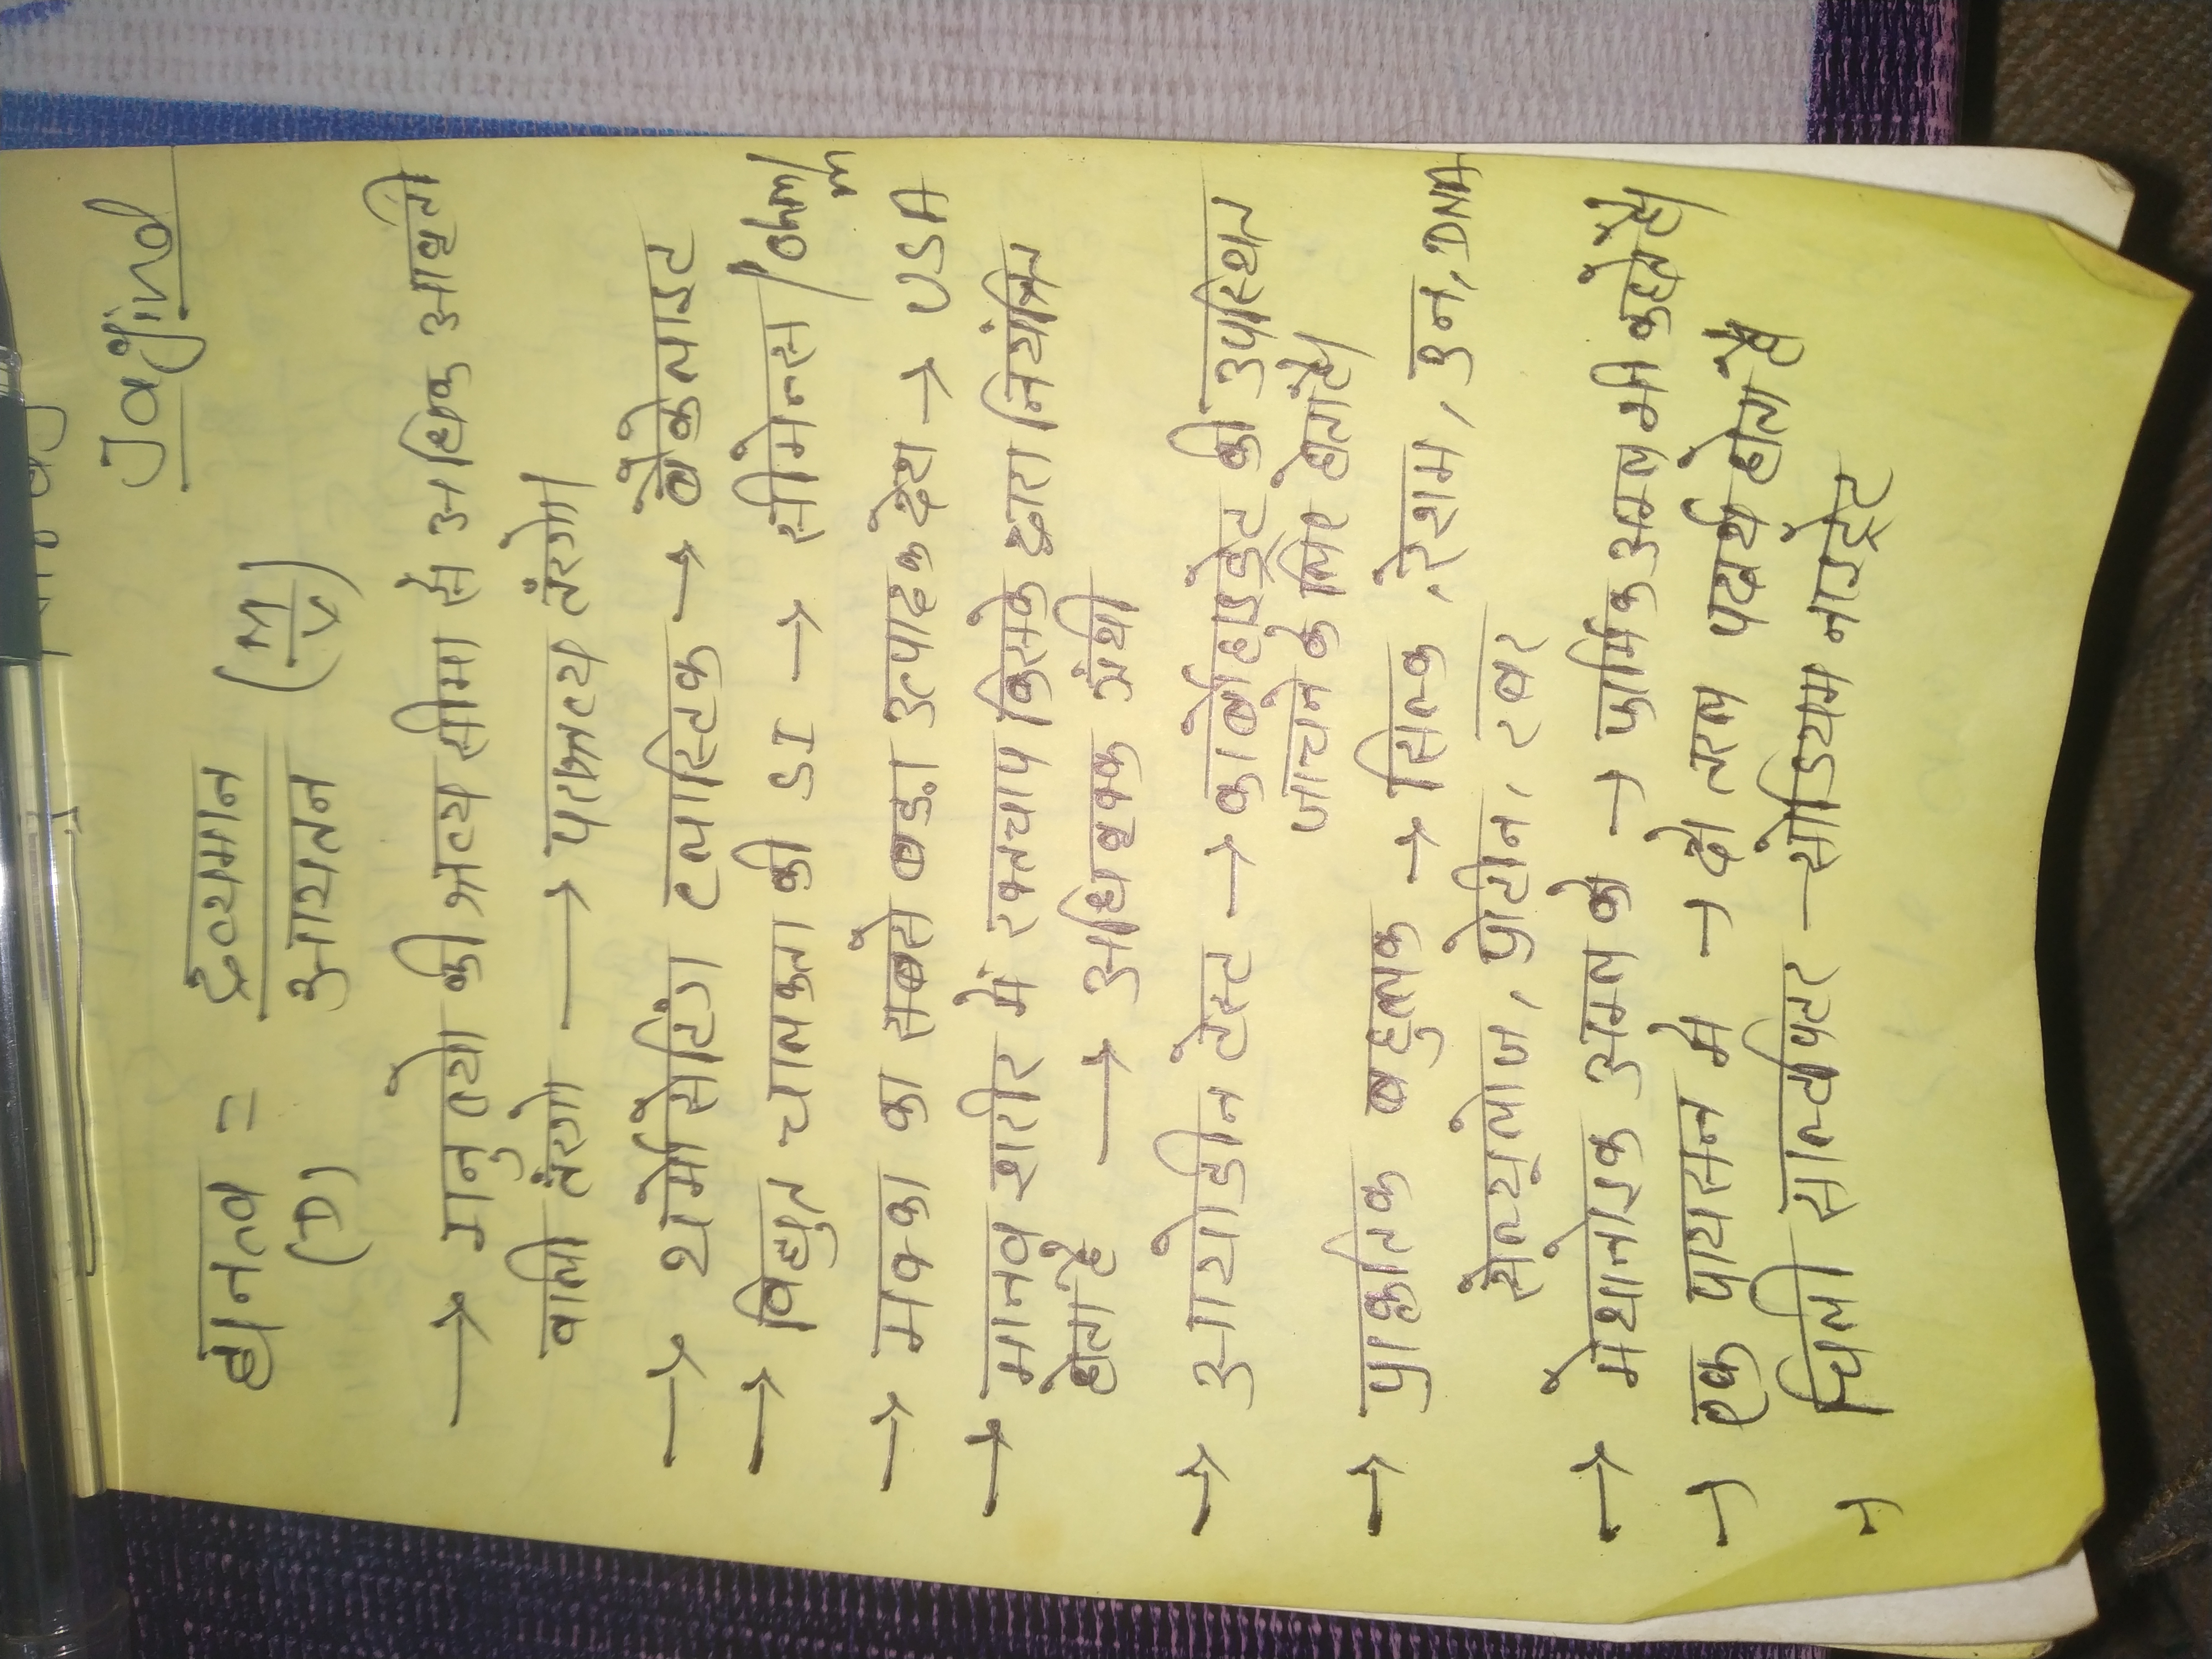 Jagjind
घनत्व = द्रव्यमान / आयतन (M/V)
(D)
→ मानुत्यो की श्रव्य सीमा से अधिक आवृती
वाली तंरगो → पराश्रव्य तंरगो।
→ थर्मोसेटिंग प्लास्टिक → बैकेलाइट
→ विद्युत चालकता की SI → सीमेन्स / ohm/m
→ मक्का का सबसे बड़ा उत्पादक देश → USA
→ मानव शरीर में रक्तचाप किसके द्वारा नियंत्रित
होता है → अधिवृक्क ग्रंथी
→ आयोडीन टेस्ट → कार्बोहाइड्रेट की उपस्थित
जाचने के लिए होता है।
→ प्राकृतिक बहुलक → सिल्क, रेशम, उन, DNA
सेल्यूलोज, प्रोटीन, रबर
→ मेथानोइक अमल को → फार्मिक अमल भी कहते है।
→ एक पायसन मे → दो तरल पदार्थ होता है
→ चिली साल्टपिटर → सोडियम नाइट्रेट